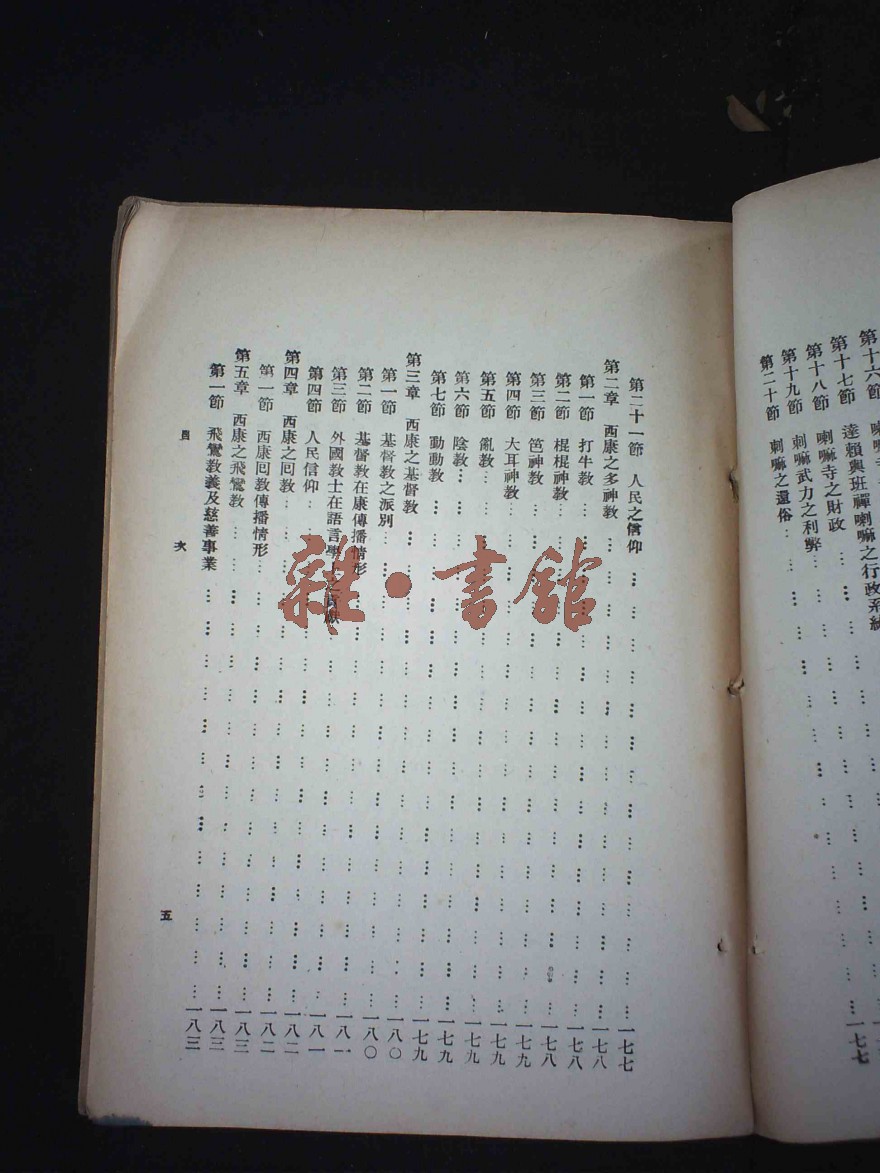 第十六節
第十七節 達賴與班禪喇嘛之行政系統
第十八節 喇嘛寺之財政
第十九節 喇嘛武力之利弊
第二十節 喇嘛之還俗 一七七
第二十一節 人民之信仰 一七七
第二章 西康之多神教 一七八
第一節 打牛教 一七八
第二節 棍棍神教 一七八
第三節 笆神教 一七九
第四節 大耳神教 一七九
第五節 亂教 一七九
第六節 陰教 一七九
第七節 動動教 一七九
第三章 西康之基督教 一八〇
第一節 基督教之派別 一八〇
第二節 基督教在康傳播情形 一八〇
第三節 外國教士在語言學上之貢獻 一八一
第四節 人民信仰 一八一
第四章 西康之回教 一八二
第一節 西康回教傳播情形 一八二
第五章 西康之飛鸞教 一八三
第一節 飛鸞教義及慈善事業 一八三
目 次
五
雜·書館